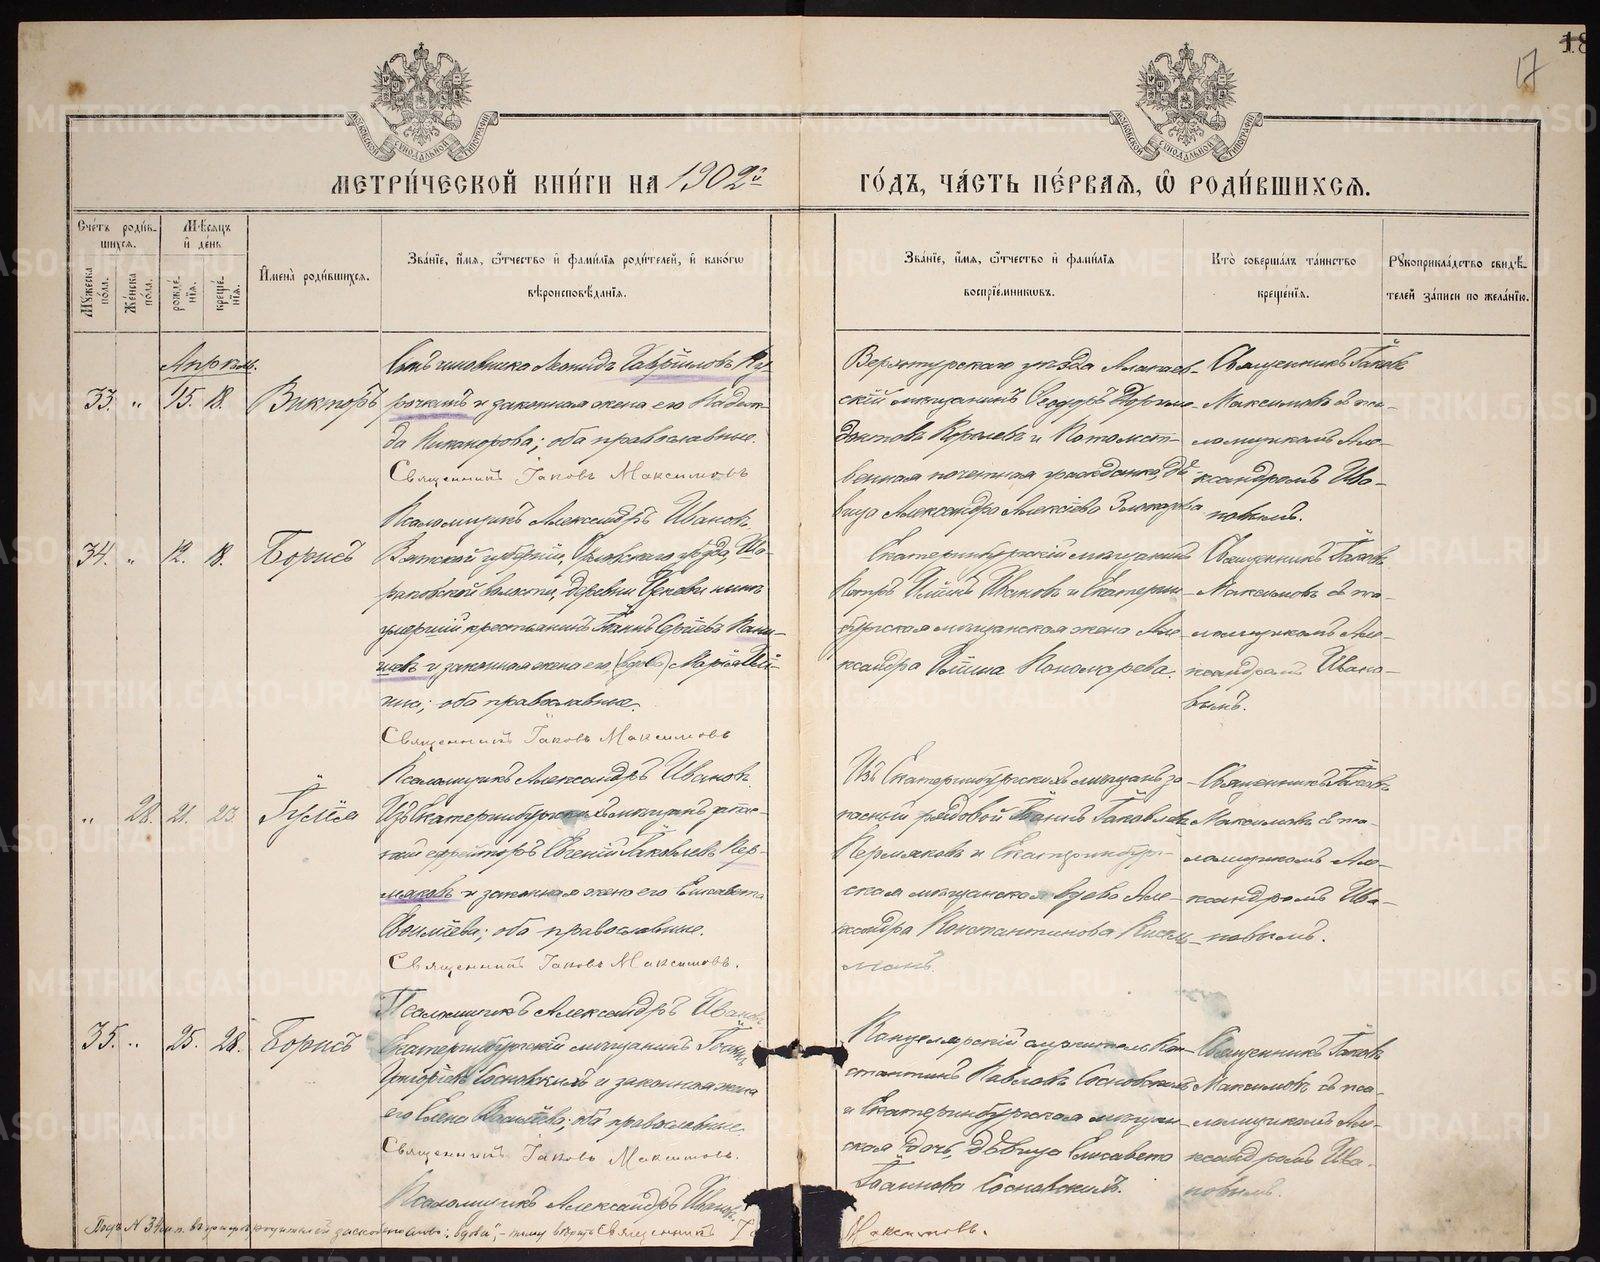 18
17
МЕТРИ́ЧЕСКОЙ КНИ́ГИ НА 1902й
ГО́ДЪ, ЧА́СТЬ ПЕ́РВАЯ, Ѡ РОДИ́ВШИХСЯ.
Сче́тъ роди́в-
шихся.
Мѣ́сяцъ
и҆ де́нь
Мꙋ́жеска по́ла.
Же́нска по́ла.
рожде́-
нїя.
креще́-
нїя.
И҆мена̀ роди́вшихся.
Зва́нїе, и҆́мя, ѻ҆́тчество и҆ фами́лїя роди́телей, и҆ како́гѡ
вѣроисповѣ́данїя.
Зва́нїе, и҆́мя, ѻ҆́тчество и҆ фами́лїя
воспрїе́мникѡвъ.
Кто̀ соверша́лъ та́инство
креще́нїя.
Рꙋкоприкла́дство свидѣ́-
телей за́писи по жела́нїю.
Апрѣль.
33. „ 15. 18. Викторъ
Сынъ чиновника Леонидъ Гавріиловъ
и законная жена его Надеж-
да Никанорова; оба православные.
Священникъ Іаковъ Максимовъ
Псаломщикъ Александръ Ивановъ.
Верхотурскаго уѣзда Алапаев-
скій мѣщанинъ Ѳеодоръ
Королевъ и Потомст-
венная почетная гражданка, дѣ-
вица Александра Алексіева
Священникъ Іаковъ
Максимовъ съ пса-
ломщикомъ Але-
ксандромъ Ива-
новымъ.
34. „ 12. 18. Борисъ
Вятской губерніи, Орловскаго уѣзда,
волости, деревни нынѣ
умершій крестьянинъ Іоаннъ Сергіевъ
и законная жена его (вдова) Марія
оба православные.
Священникъ Іаковъ Максимовъ
Псаломщикъ Александръ Ивановъ.
Екатеринбургскій мѣщанинъ
Петръ Ивановъ и Екатерин-
бургская мѣщанская жена Але-
ксандра Пономарева.
Священникъ Іаковъ
Максимовъ съ пса-
ломщикомъ Але-
ксандромъ Ивано-
вымъ.
„ 28. 21. 23. Іулія
Изъ Екатеринбургскихъ мѣщанъ запас-
ный ефрейторъ Евгеній Іаковлевъ Пер-
мяковъ и законная жена его Елисавета
оба православные.
Священникъ Іаковъ Максимовъ.
Псаломщикъ Александръ Ивановъ
Изъ Екатеринбургскихъ мѣщанъ за-
пасный рядовой Іоаннъ Іаковлевъ
Пермяковъ и Екатеринбург-
ская мѣщанская вдова Але-
ксандра Константинова
Священникъ Іаковъ
Максимовъ съ пса-
ломщикомъ Але-
ксандромъ Ива-
новымъ.
35. „ 25. 28. Борисъ
Екатеринбургскій мѣщанинъ Іоаннъ
Григоріевъ Сосновскихъ и законная жена
его Елена Васильева; оба православные.
Священникъ Іаковъ Максимовъ.
Псаломщикъ Александръ Ивановъ
Канцелярскій служитель Кон-
стантинъ Павловъ Сосновскихъ
и Екатеринбургская мѣщан-
ская дочь, дѣвица Елисавета
Іоаннова Сосновскихъ.
Священникъ Іаковъ
Максимовъ съ пса-
ломщикомъ Але-
ксандромъ Ива-
новымъ.
Подъ № 34 м. п. въ графѣ родителей „вдова“,- тому вѣрить Священникъ
Максимовъ.
METRIKI.GASO-URAL.RU